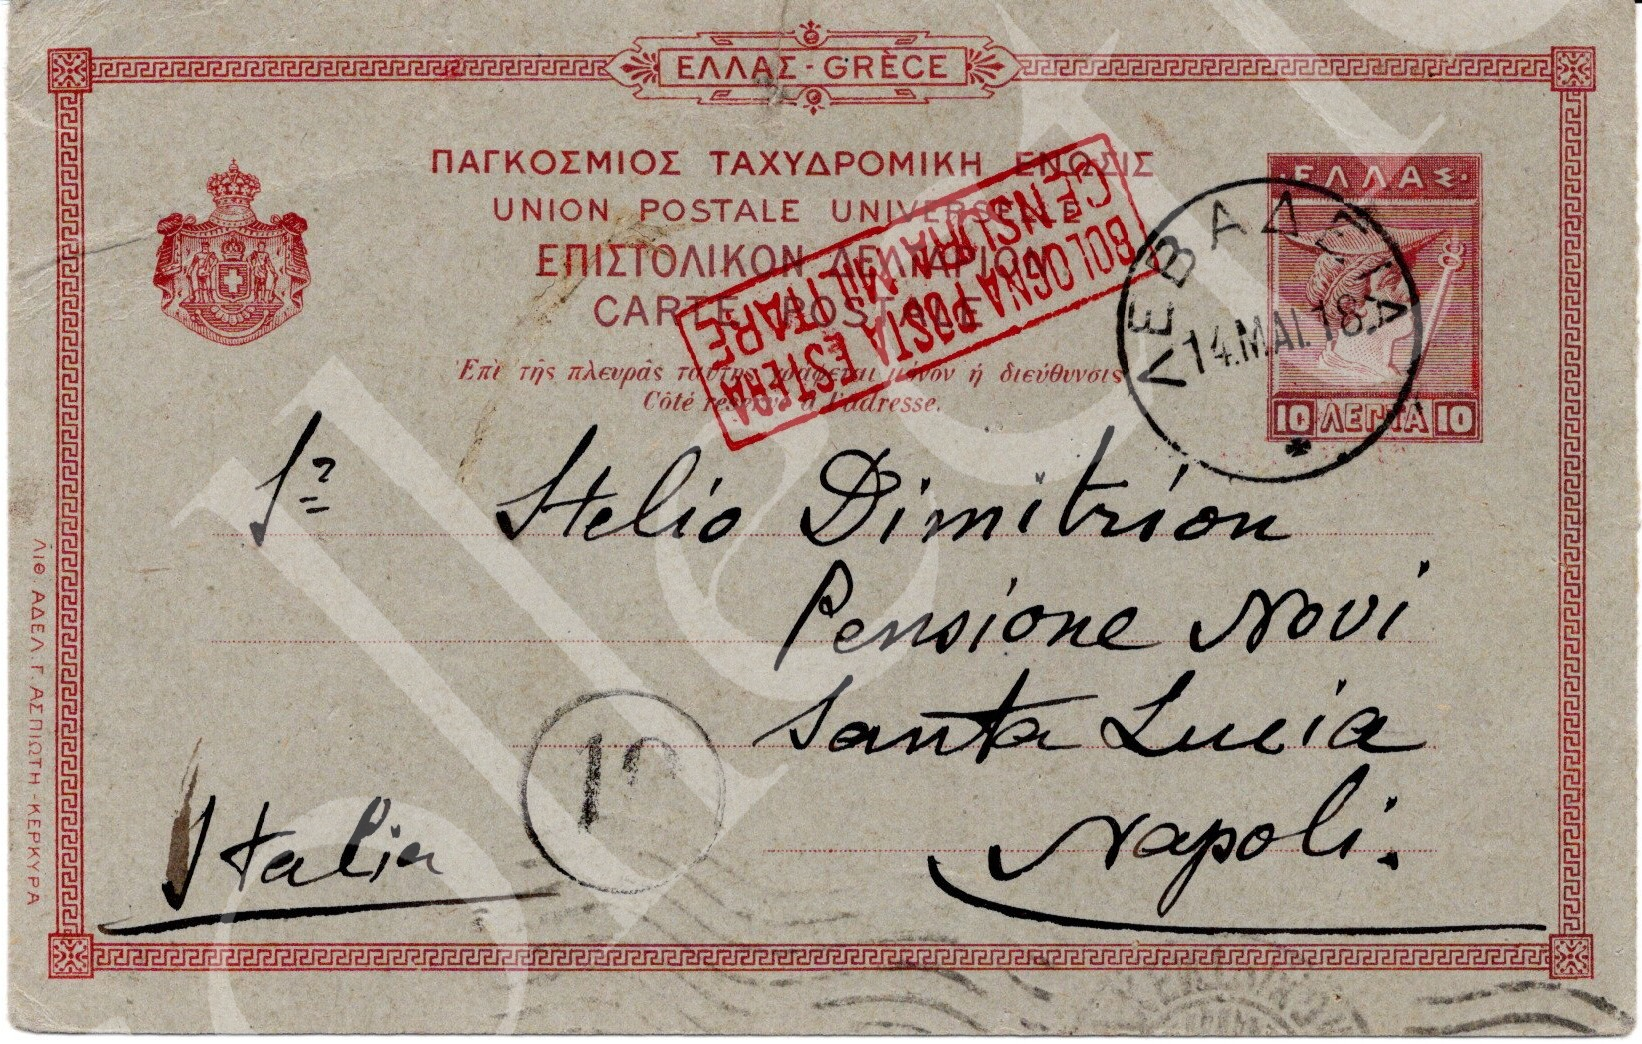 ΕΛΛΑΣ - GRÈCE
ΠΑΓΚΟΣΜΙΟΣ ΤΑΧΥΔΡΟΜΙΚΗ ΕΝΩΣΙΣ
UNION POSTALE UNIVERSELLE
ΕΠΙΣΤΟΛΙΚΟΝ ΔΕΛΤΑΡΙΟΝ
CARTE POSTALE
Ἐπὶ τῆς πλευρᾶς ταύτης γράφεται μόνον ἡ διεύθυνσις
Côté réservé à l'adresse.
BOLOGNA POSTA ESTERA
CENSURA MILITARE
·ΕΛΛΑΣ·
10 ΛΕΠΤΑ 10
ΛΕΒΑΔΕΙΑ
14.ΜΑΙ.18
Sr Stelio Dimitriou
Pensione Novi
Santa Lucia
Napoli.
Italia
ΛΙΘ. ΑΔΕΛ. Γ. ΑΣΠΙΩΤΗ - ΚΕΡΚΥΡΑ